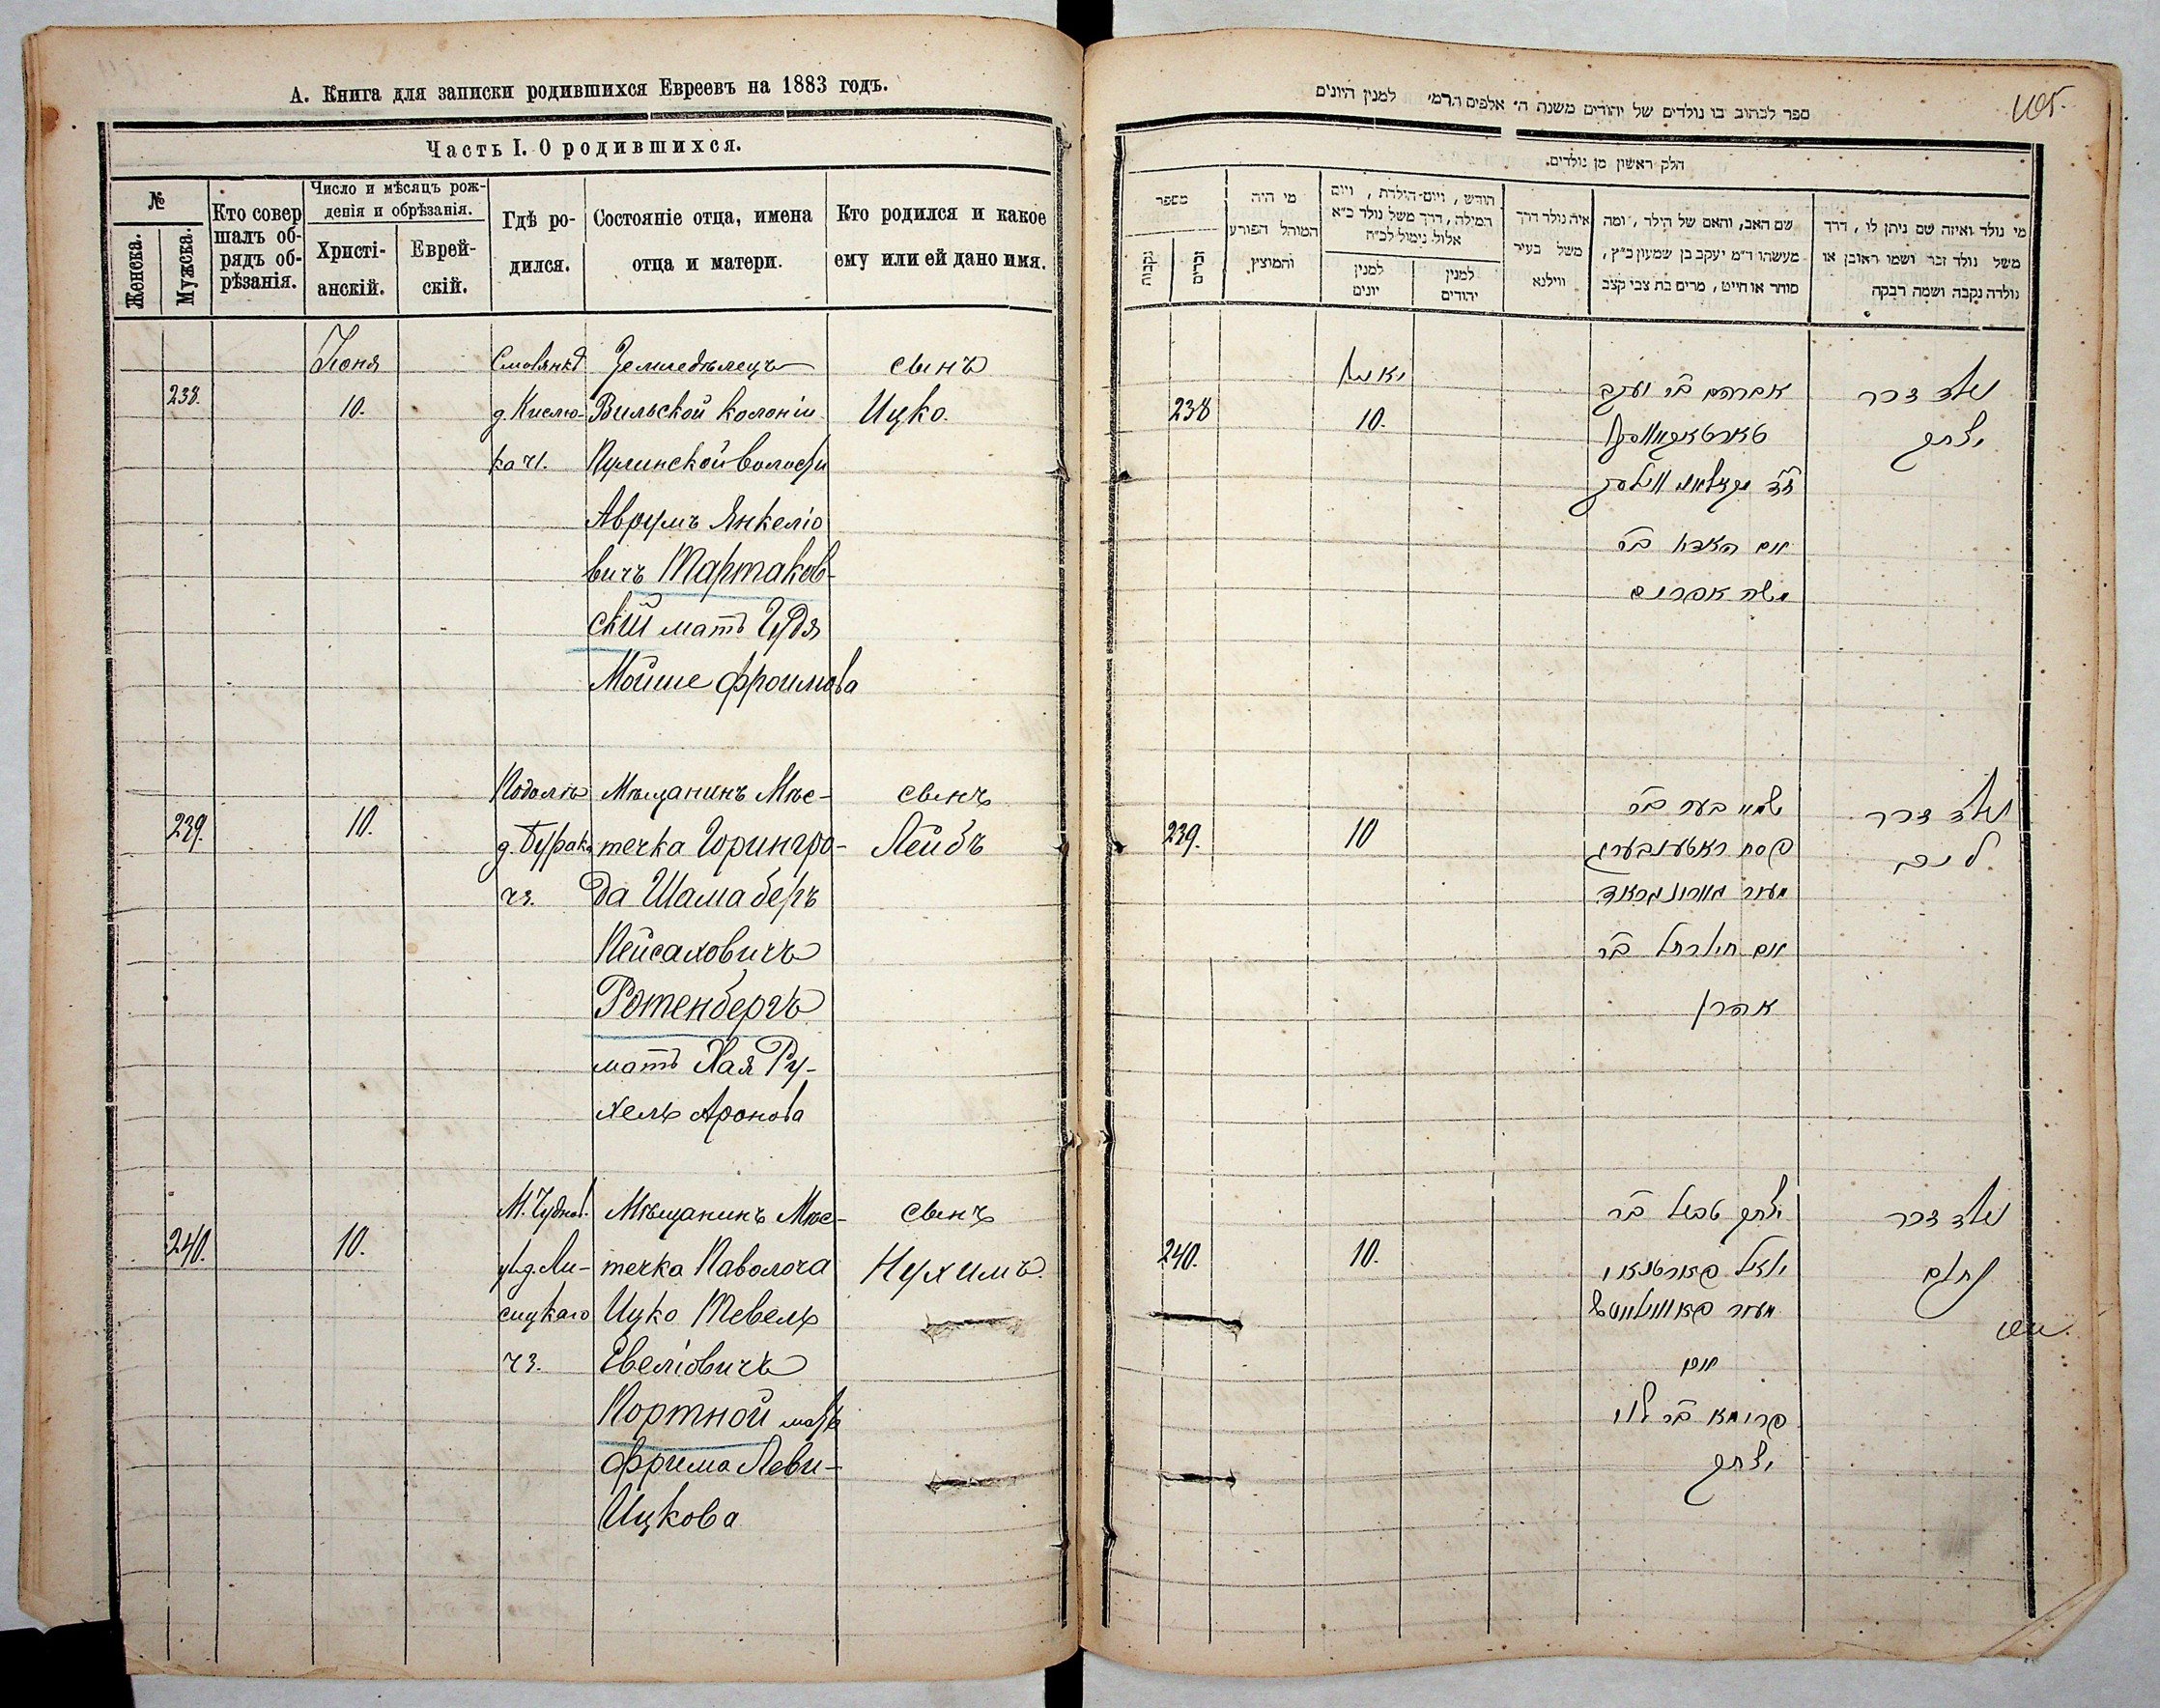 А. Книга для записки родившихся Евреевъ на 1883 годъ.
Часть I. О родившихся.
№
Женска.
Мужска.
Кто совер
шалъ об-
рядъ об-
рѣзанія.
Число и мѣсяцъ рож-
денія и обрѣзанія.
Христі-
анскій.
Еврей-
скій.
Гдѣ ро-
дился.
Состояніе отца, имена
отца и матери.
Кто родился и какое
ему или ей дано имя.
238.
Іюня
10.
д. Кислю-
ка чı.
Земледѣлецъ
Вильской колоніи
Пулинской волости
Аврумъ Янкеліо
вичъ Тартаков-
скій мать Гудя
Мойше Фроимова
сынъ
Ицко.
239.
10.
д. Бурако
чз.
Мѣщанинъ Мѣс-
течка Горингро-
да Шама беръ
Пейсаховичъ
Ротенбергъ
мать Хая Ру-
хель Аронова
сынъ
Лейбъ
240.
10.
М. Чуднов.
у. д. Ли-
сицкаго
чз.
Мѣщанинъ Мѣс-
течка Паволоча
Ицко Тевель
Евеліовичъ
Портной мать
Фрима Леви-
Ицкова
сынъ
Нухимъ.
ספר לכתוב בו נולדים של יהודים משנת ה' אלפים תרמ' למנין היונים
חלק ראשון מן נולדים.
מספר
נקבות
זכרים
מי היה
המוהל הפורע
והמוצץ
חודש, ויום הילדת, ויום
המילה, דרך משל נולד כ"א
אלול נימול לכ"ח
למנין
יונים
למנין
יהודים
איה נולד דרך
משל בעיר
ווילנא
שם האב, והאם של הילד, ומה
מעשהו ד"מ יעקב בן שמעון כ"ץ,
סוחר או חייט, מרים בת צבי קצב
מי נולד ואיזה שם ניתן לו, דרך
משל נולד זכר ושמו ראובן או
נולדה נקבה ושמה רבקה
238
יאני
10.
אברהם בר יעקב
טארטאקאווסקי
משה אפרים
נולד זכר
יצחק
239.
10
שמאי בער בר
פסח ראטענבערג
מעיר גורינגראד
אם חי' רחל בר
אהרן
נולד זכר
ליב
240.
10.
יצחק טבל בר
יואל פארטנאי
מעיר פאוואליטש
אם
פרומא בר לוי
יצחק
נולד זכר
נחום